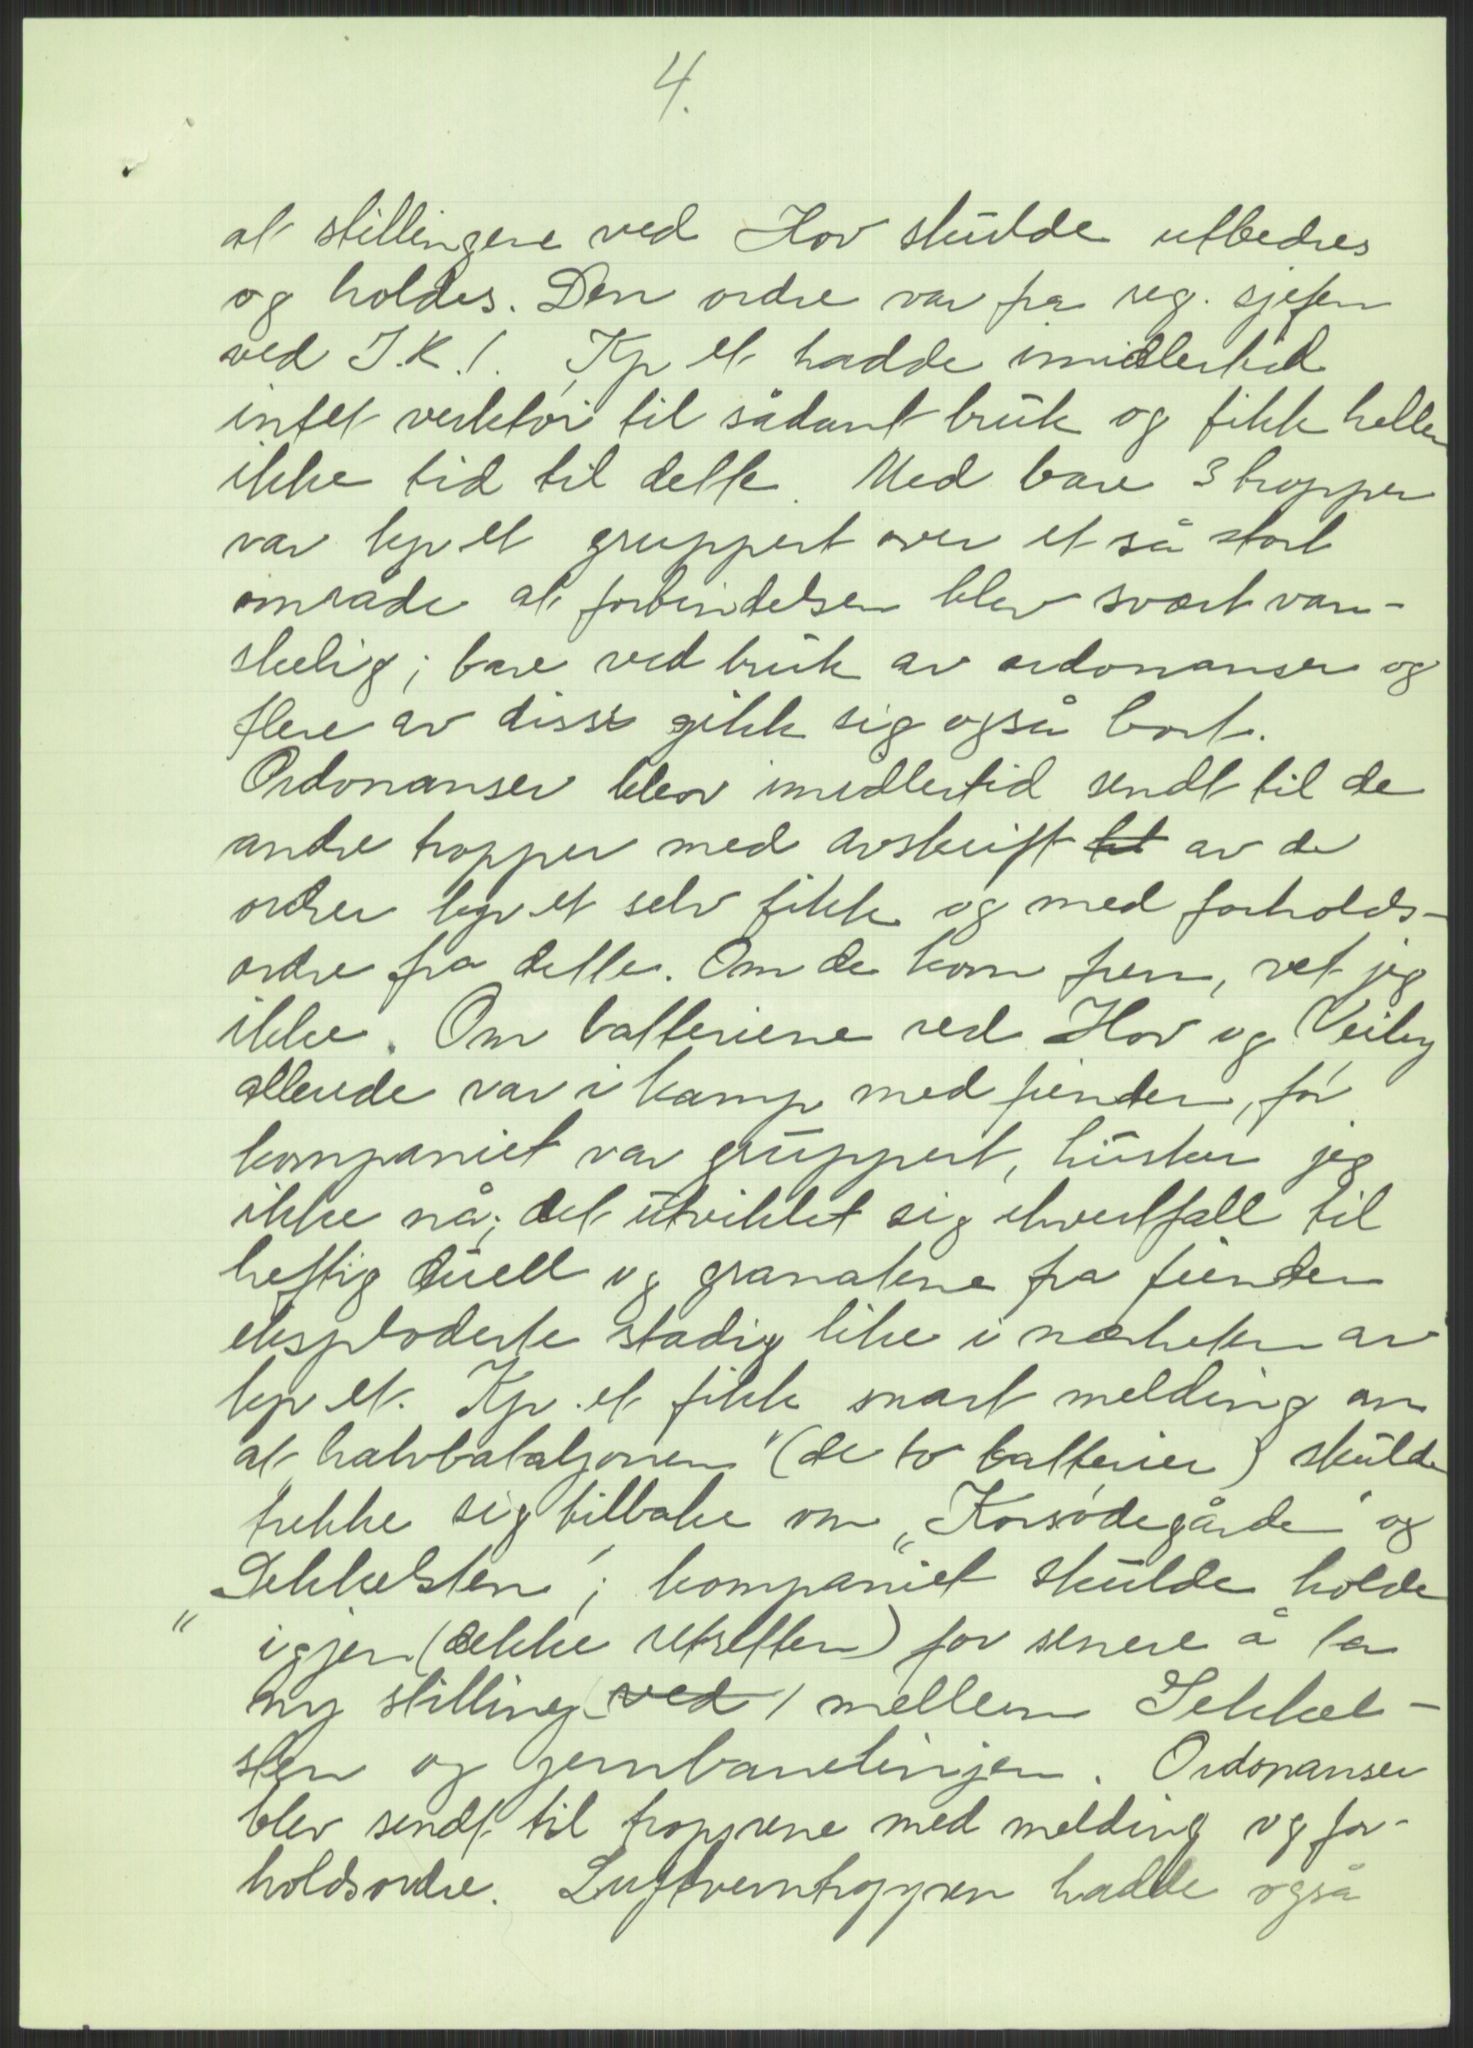 4.
at stillingene ved Hov skulde utbedres
og holdes. Den ordre var fra reg. sjefen
ved I.R.1. Kp et hadde imidlertid
intet verktøi til sådant bruk og fikk heller
ikke tid til dette. Med bare 3 tropper
var kp et gruppert over et så stort
område at forbindelsen blev svært van-
skelig; bare ved bruk av ordonanser og
flere av disse gikk sig også bort.
Ordonanser blev imidlertid sendt til de
andre tropper med avskrift av de
ordrer kp et selv fikk og med forholds-
ordre fra dette. Om de kom frem, vet jeg
ikke. Om batteriene ved Hov og Veiby
allerede var i kamp med fienden, før
kompaniet var gruppert, husker jeg
ikke nå; det utviklet sig ihvertfall til
heftig duell og granatene fra fienden
eksploderte stadig like i nærheten av
kp et. Kp. et fikk snart melding om
at "halvbataljonen" (de to batterier) skulde
trekke sig tilbake om „Korsødegården" og
„Sekkelsten"; kompaniet skulde holde
igjen (dekke retretten) for senere å ta
ny stilling ved / mellem Sekkel-
sten og jernbanelinjen. Ordonanser
blev sendt til troppene med melding og for-
holdsordre. Luftverntroppen hadde også